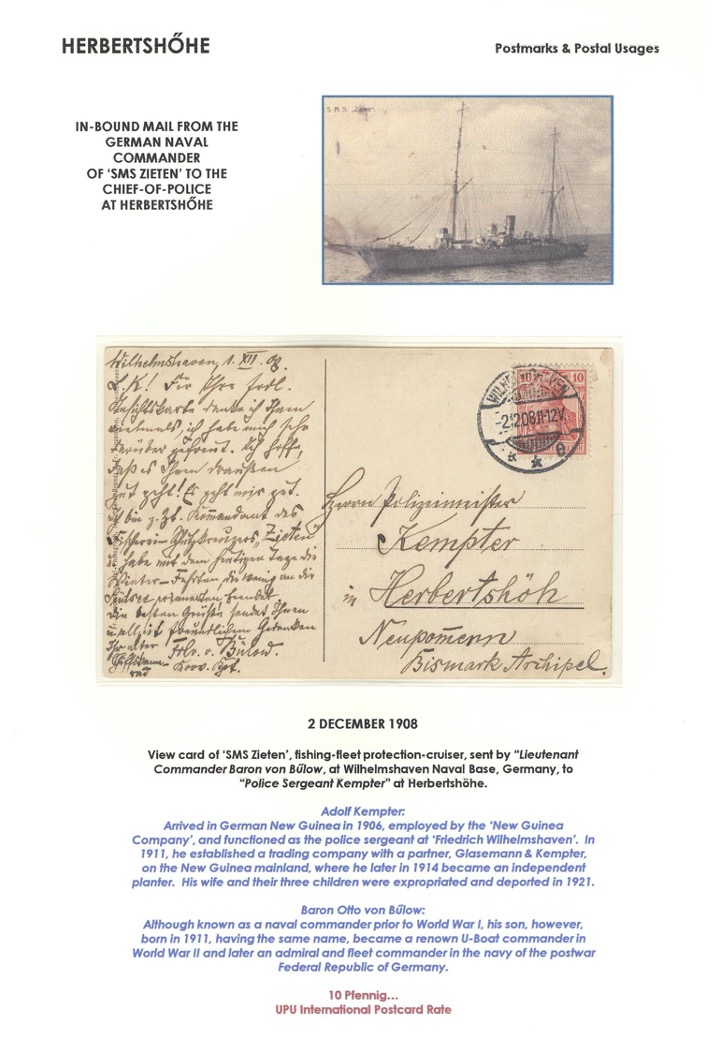 HERBERTSHŐHE
Postmarks & Postal Usages
IN-BOUND MAIL FROM THE
GERMAN NAVAL
COMMANDER
OF ‘SMS ZIETEN’ TO THE
CHIEF-OF-POLICE
AT HERBERTSHŐHE
S.M.S. „Zieten“
Wilhelmshaven, 1. XII. 08.
L. K! Für Ihre frdl.
Ansichtskarte danke ich Ihnen
vielmals, ich habe mich sehr
darüber gefreut. Ich hoffe,
daß es Ihnen draußen
gut geht! Es geht mir gut.
Ich bin z. Zt. Kommandant des
Fischerei-Schutzkreuzers „Zieten“
u. habe mit dem heutigen Tage die
Winter-Fahrten, die wenig an die
Südsee erinnerten beendet.
Die besten Grüße sendet Ihnen
u. freundlichem Gedenken
Ihr alter Frhr. v. Bülow.
Schiffskame- Korv. Kpt.
rad
10 10
WILHELMSHAVEN
-2.12.08.11-12V.
* * e
Herrn Polizeimeister
Kempter
in Herbertshöh
Neupomern
Bismark Archipel.
2 DECEMBER 1908
View card of ‘SMS Zieten’, fishing-fleet protection-cruiser, sent by “Lieutenant
Commander Baron von Bűlow, at Wilhelmshaven Naval Base, Germany, to
“Police Sergeant Kempter” at Herbertshöhe.
Adolf Kempter:
Arrived in German New Guinea in 1906, employed by the ‘New Guinea
Company’, and functioned as the police sergeant at ‘Friedrich Wilhelmshaven’. In
1911, he established a trading company with a partner, Glasemann & Kempter,
on the New Guinea mainland, where he later in 1914 became an independent
planter. His wife and their three children were expropriated and deported in 1921.
Baron Otto von Bűlow:
Although known as a naval commander prior to World War I, his son, however,
born in 1911, having the same name, became a renown U-Boat commander in
World War II and later an admiral and fleet commander in the navy of the postwar
Federal Republic of Germany.
10 Pfennig...
UPU International Postcard Rate